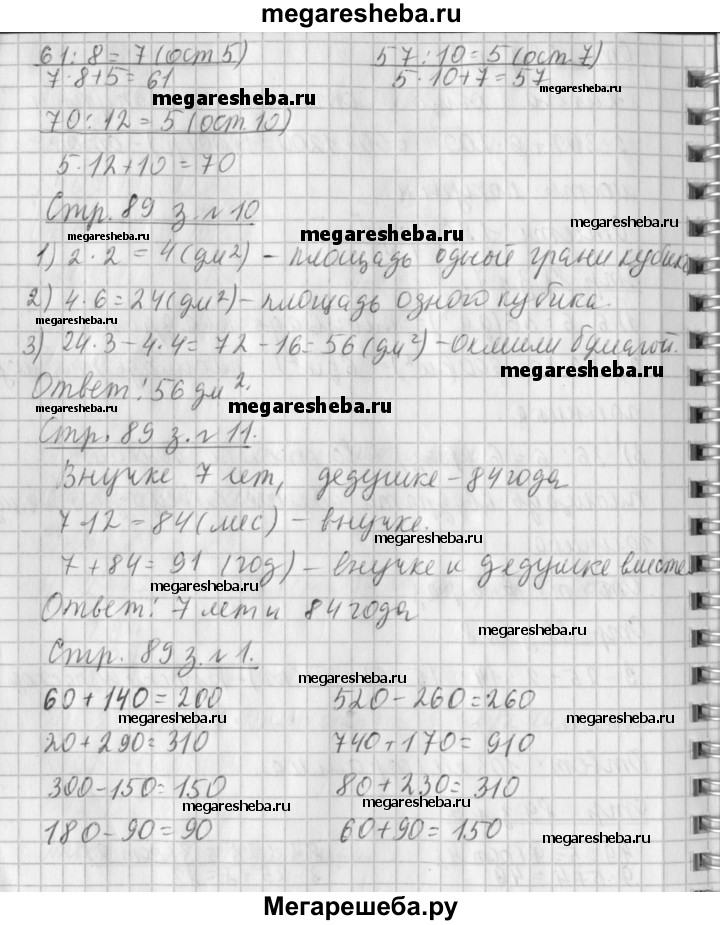 megaresheba.ru
61:8=7(ост.5) 57:10=5(ост.7)
7·8+5=61 5·10+7=57
megaresheba.ru megaresheba.ru
70:12=5(ост.10)
5·12+10=70
Стр. 89 з. №10
megaresheba.ru megaresheba.ru megaresheba.ru
1) 2·2=4(дм²) - площадь одной грани кубика
2) 4·6=24(дм²) - площадь одного кубика.
megaresheba.ru
3) 24·3-4·4=72-16=56(дм²) - оклеили бумагой.
megaresheba.ru
Ответ: 56 дм².
megaresheba.ru megaresheba.ru
Стр. 89 з. №11.
Внучке 7 лет, дедушке - 84 года
7·12=84(мес) - внучке.
megaresheba.ru
7+84=91 (год) - внучке и дедушке вместе
megaresheba.ru
Ответ: 7 лет и 84 года
megaresheba.ru
Стр. 89 з. №1.
megaresheba.ru
60+140=200 520-260=260
megaresheba.ru megaresheba.ru
20+290=310 740+170=910
300-150=150 80+230=310
megaresheba.ru megaresheba.ru
180-90=90 60+90=150
megaresheba.ru
Мегарешеба.ру